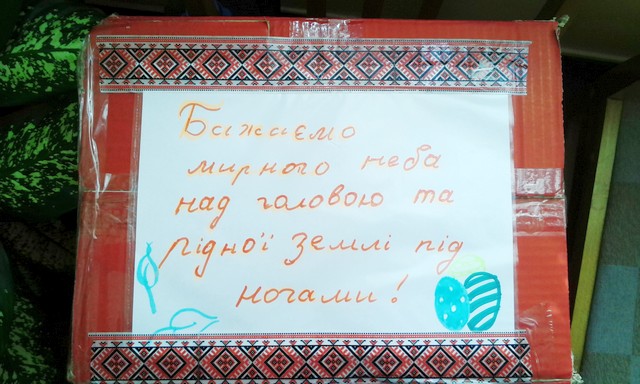 Бажаємо
мирного неба
над головою та
рідної землі під
ногами!